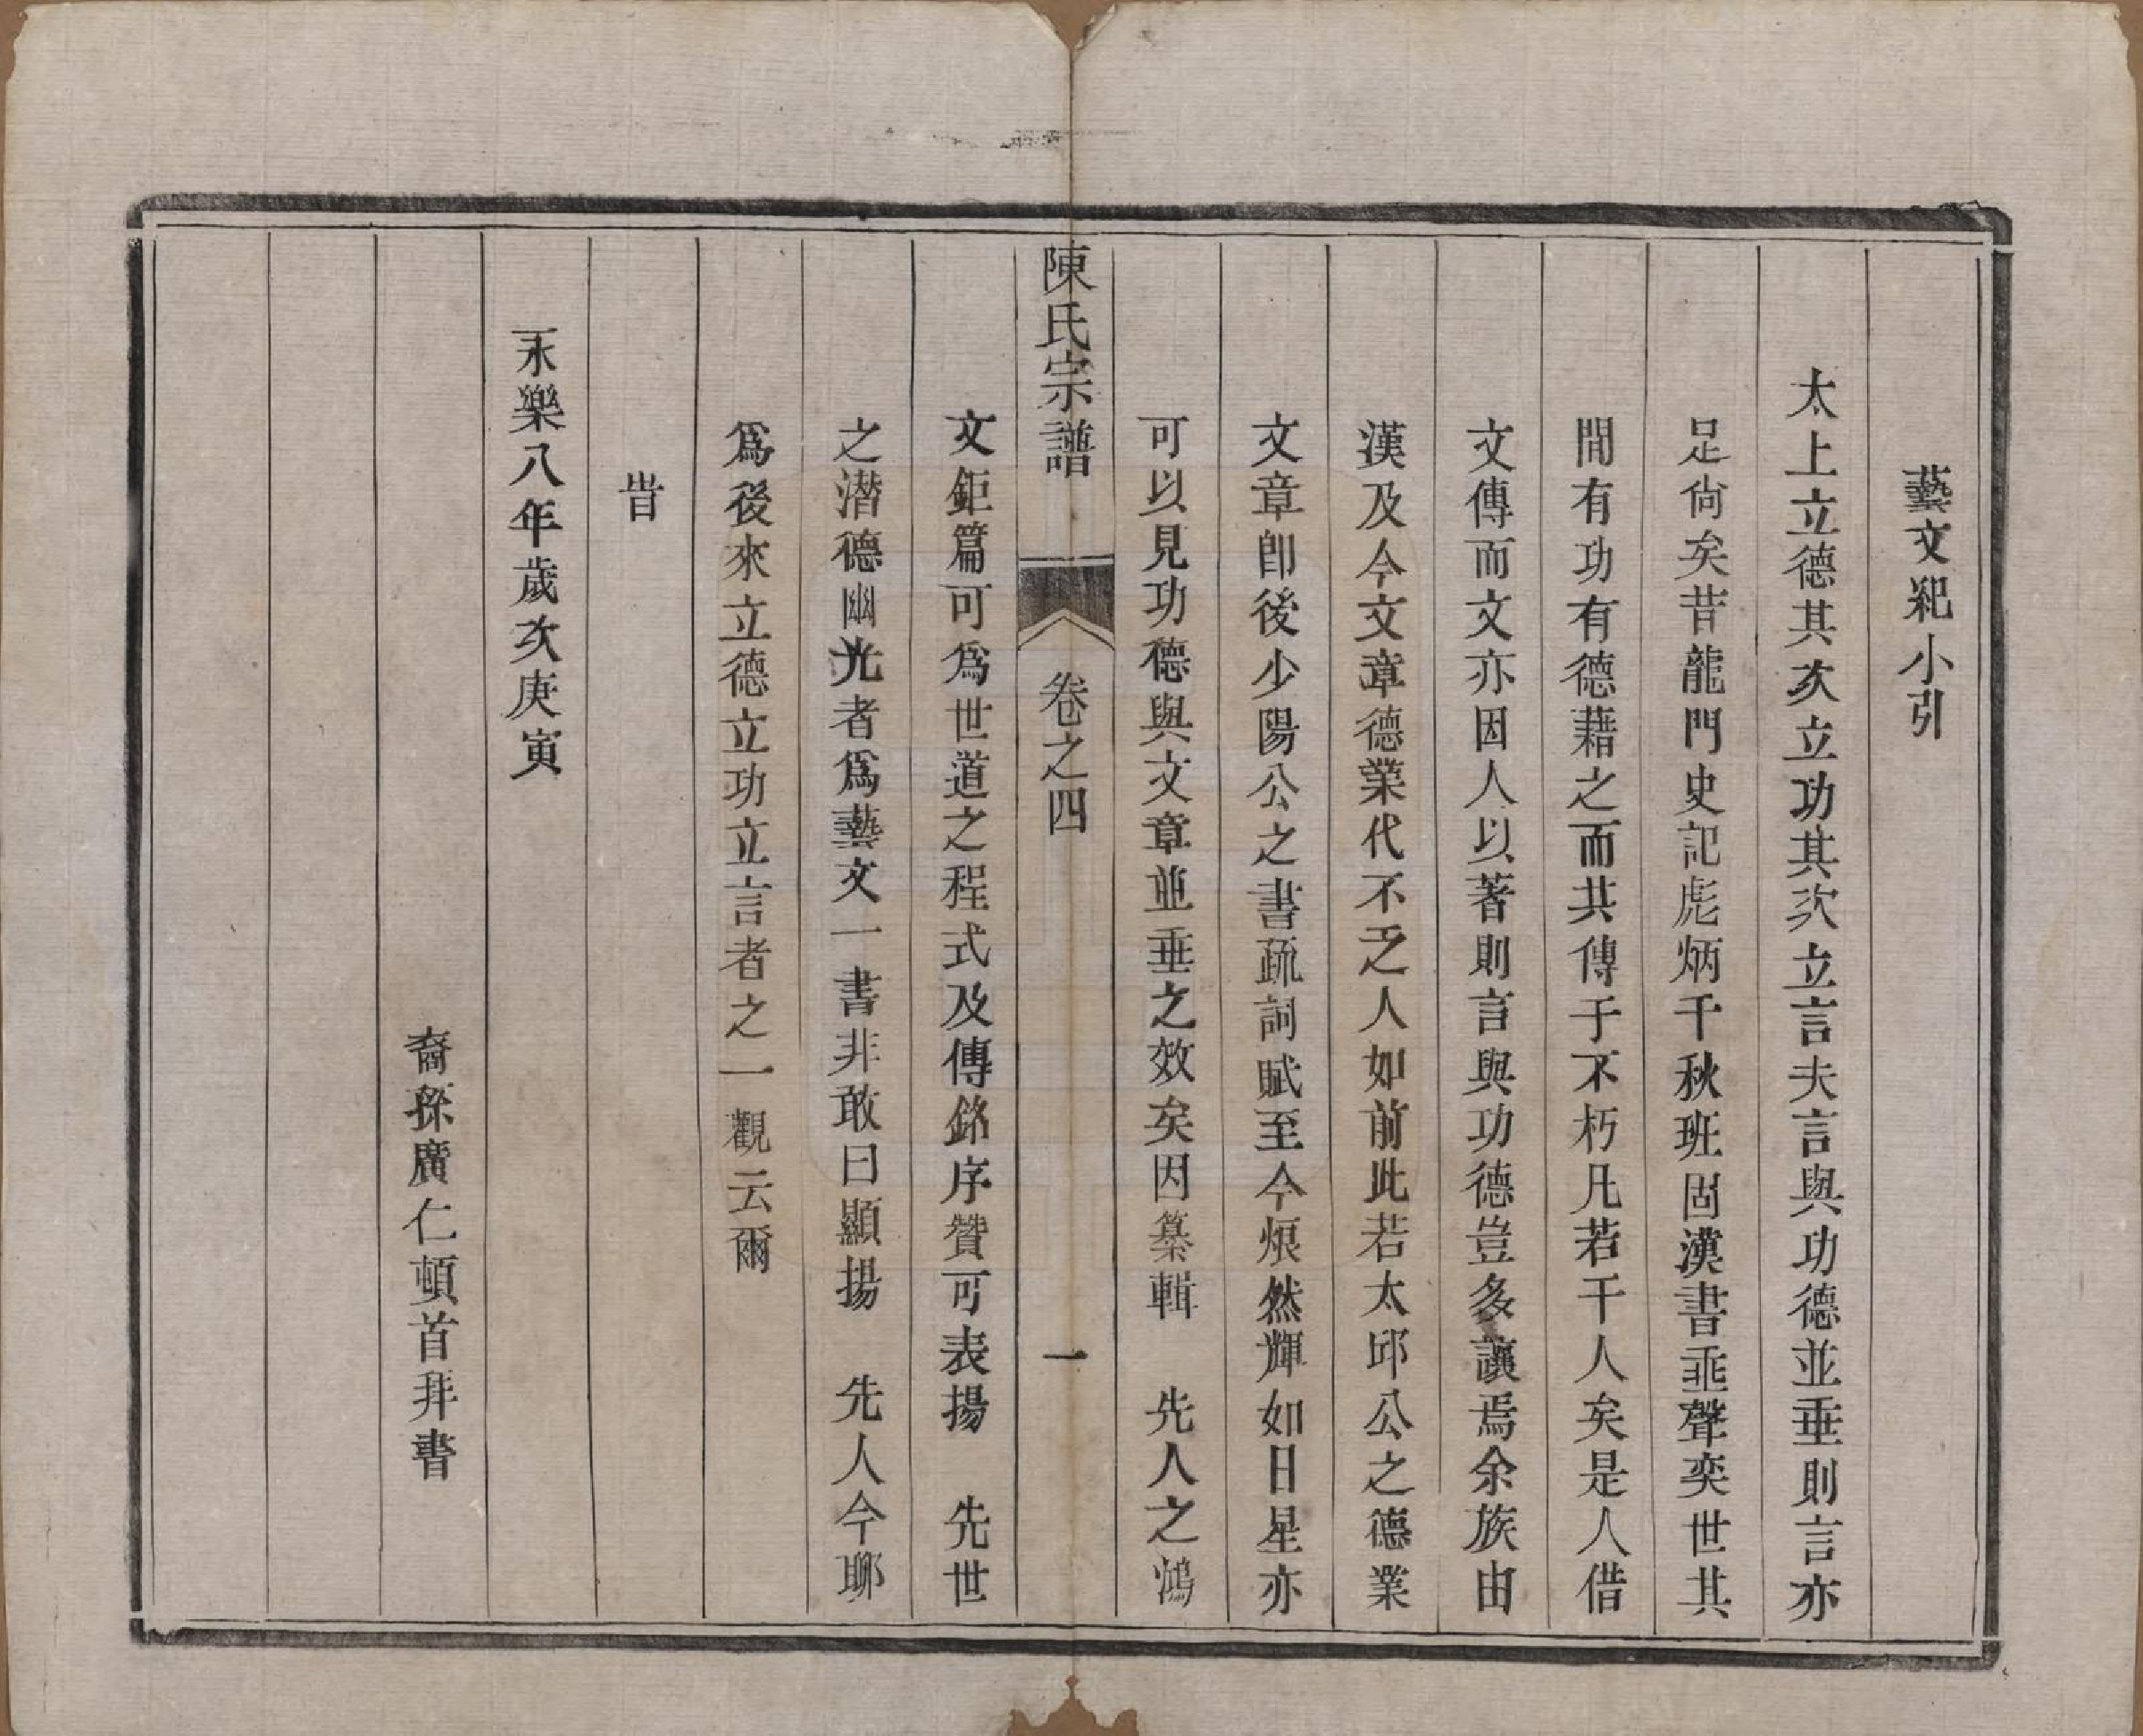 藝文紀小引
太上立德其次立功其次立言夫言與功德並垂則言亦
足尙矣昔龍門史記彪炳千秋班固漢書垂聲奕世其
間有功有德藉之而其傳于不朽凡若干人矣是人借
文傳而文亦因人以著則言與功德豈多讓焉余族由
漢及今文章德業代不乏人如前此若太邱公之德業
文章卽後少陽公之書疏詞賦至今烺然輝如日星亦
可以見功德與文章並垂之效矣因纂輯 先人之鴻
陳氏宗譜 卷之四 一
文鉅篇可爲世道之程式及傳銘序贊可表揚 先世
之潜德幽光者爲藝文一書非敢曰顯揚 先人今聊
爲後來立德立功立言者之一觀云爾
旹
永樂八年歲次庚寅
裔孫廣仁頓首拜書